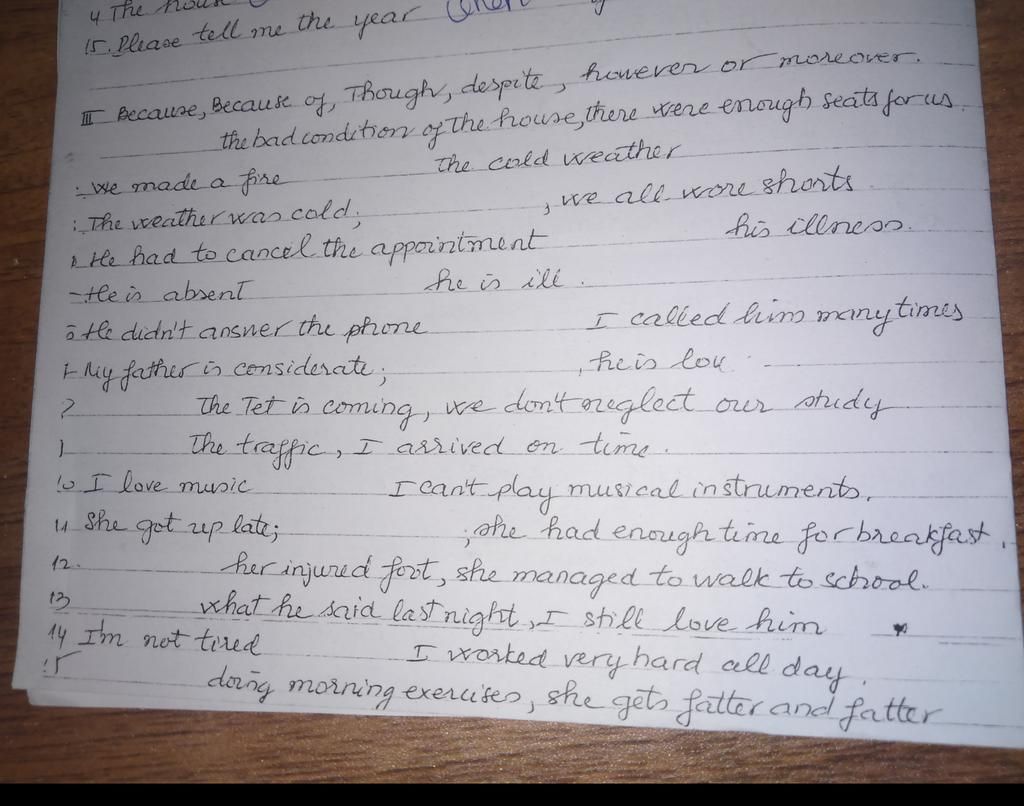 4 The house
15. Please tell me the year when
III Because, Because of, Though, despite, however or moreover.
the bad condition of the house, there were enough seats for us.
We made a fire the cold weather
The weather was cold; , we all wore shorts
He had to cancel the appointment his illness.
He is absent he is ill.
He didn't answer the phone I called him many times
My father is considerate; , he is
The Tet is coming, we don't neglect our study
The traffic, I arrived on time.
10 I love music I can't play musical instruments.
11 She got up late; ; she had enough time for breakfast.
12. her injured foot, she managed to walk to school.
13 what he said last night, I still love him
14 I'm not tired I worked very hard all day.
15 doing morning exercises, she gets fatter and fatter